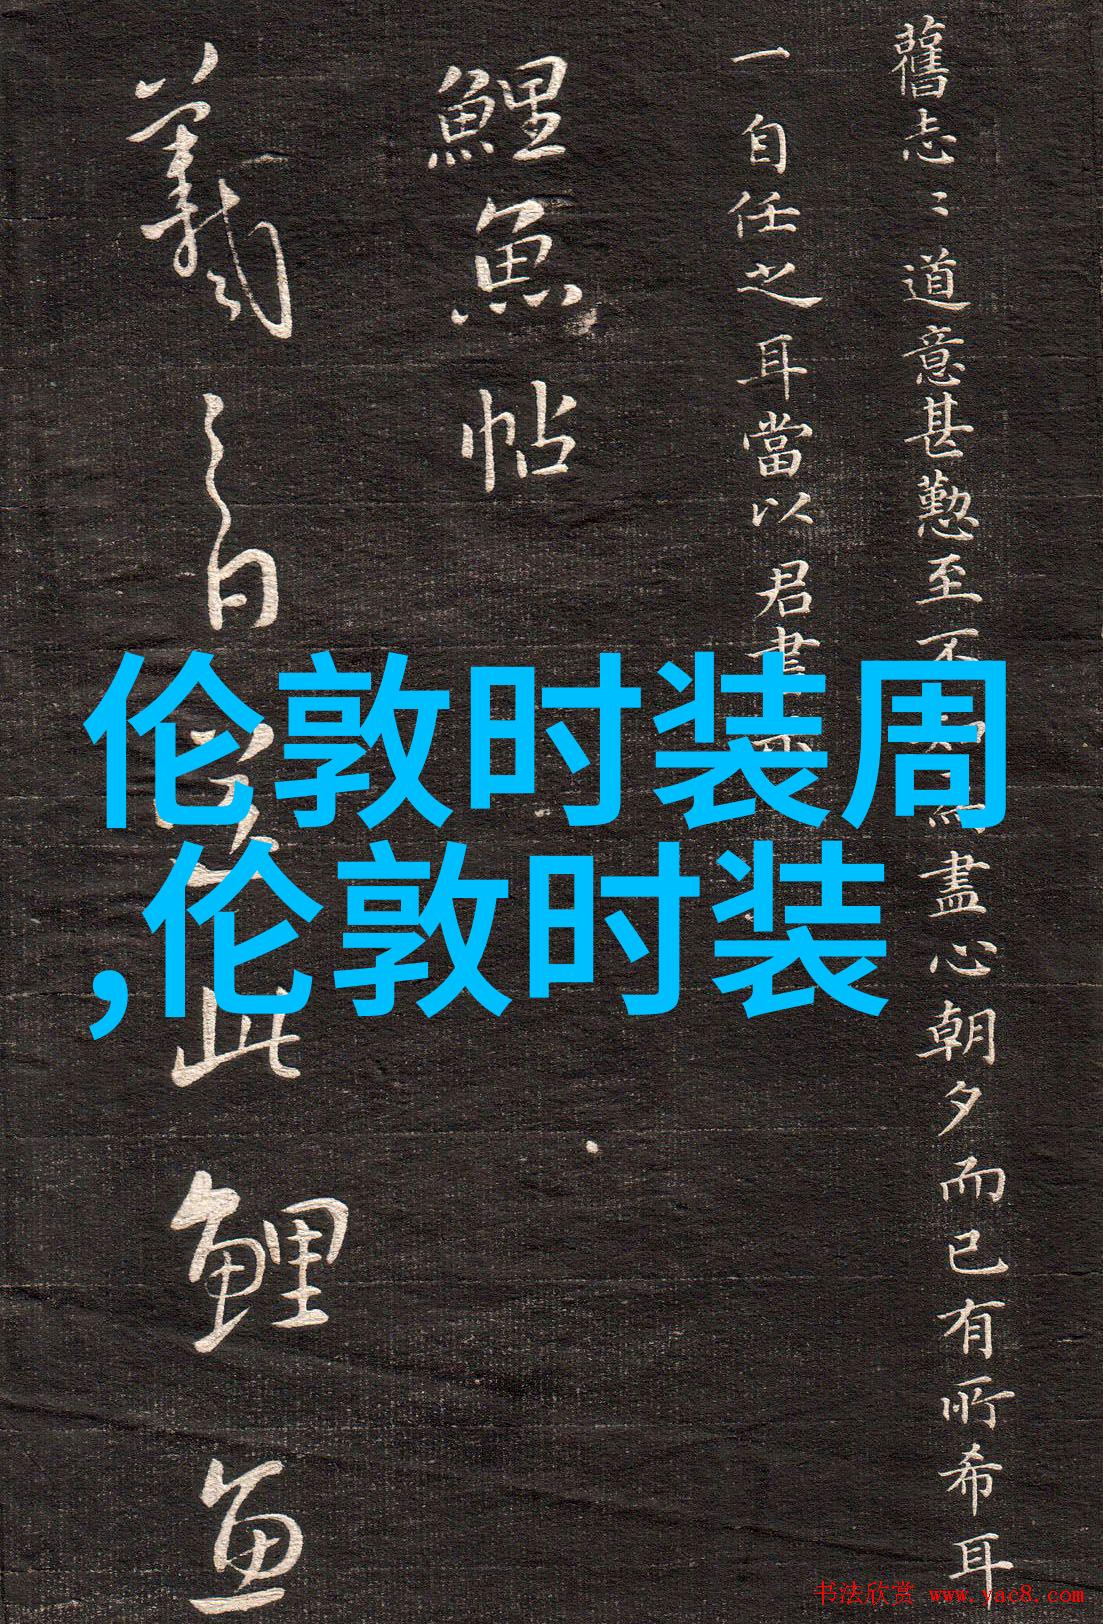 舊志〻道意甚懃至不
盡心朝夕而已有所希耳
一自任之耳當以君書
鯉魚帖
羲之白
此鯉魚
伦敦时装周
,伦敦时装
书法欣赏 www.yac8.com